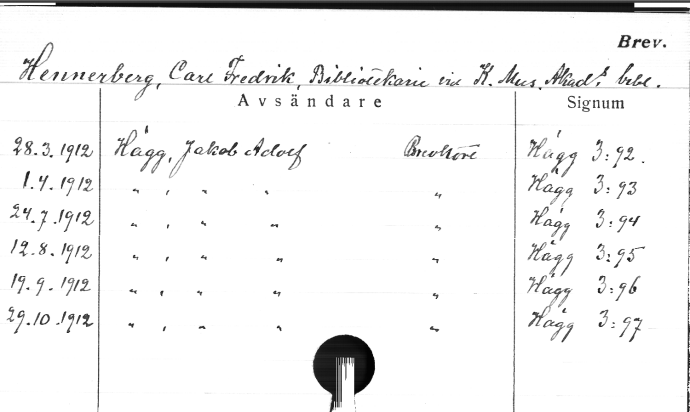 Brev.
Hennerberg, Carl Fredrik, Bibliotekarie vid K. Mus. Akad:s bibl.
Avsändare Signum
28.3.1912 Hägg, Jakob Adolf Hägg 3:92.
1.4.1912 " , " " " Hägg 3:93
24.7.1912 " , " " " Hägg 3:94
12.8.1912 " , " " " Hägg 3:95
19.9.1912 " , " " " Hägg 3:96
29.10.1912 " , " " " Hägg 3:97